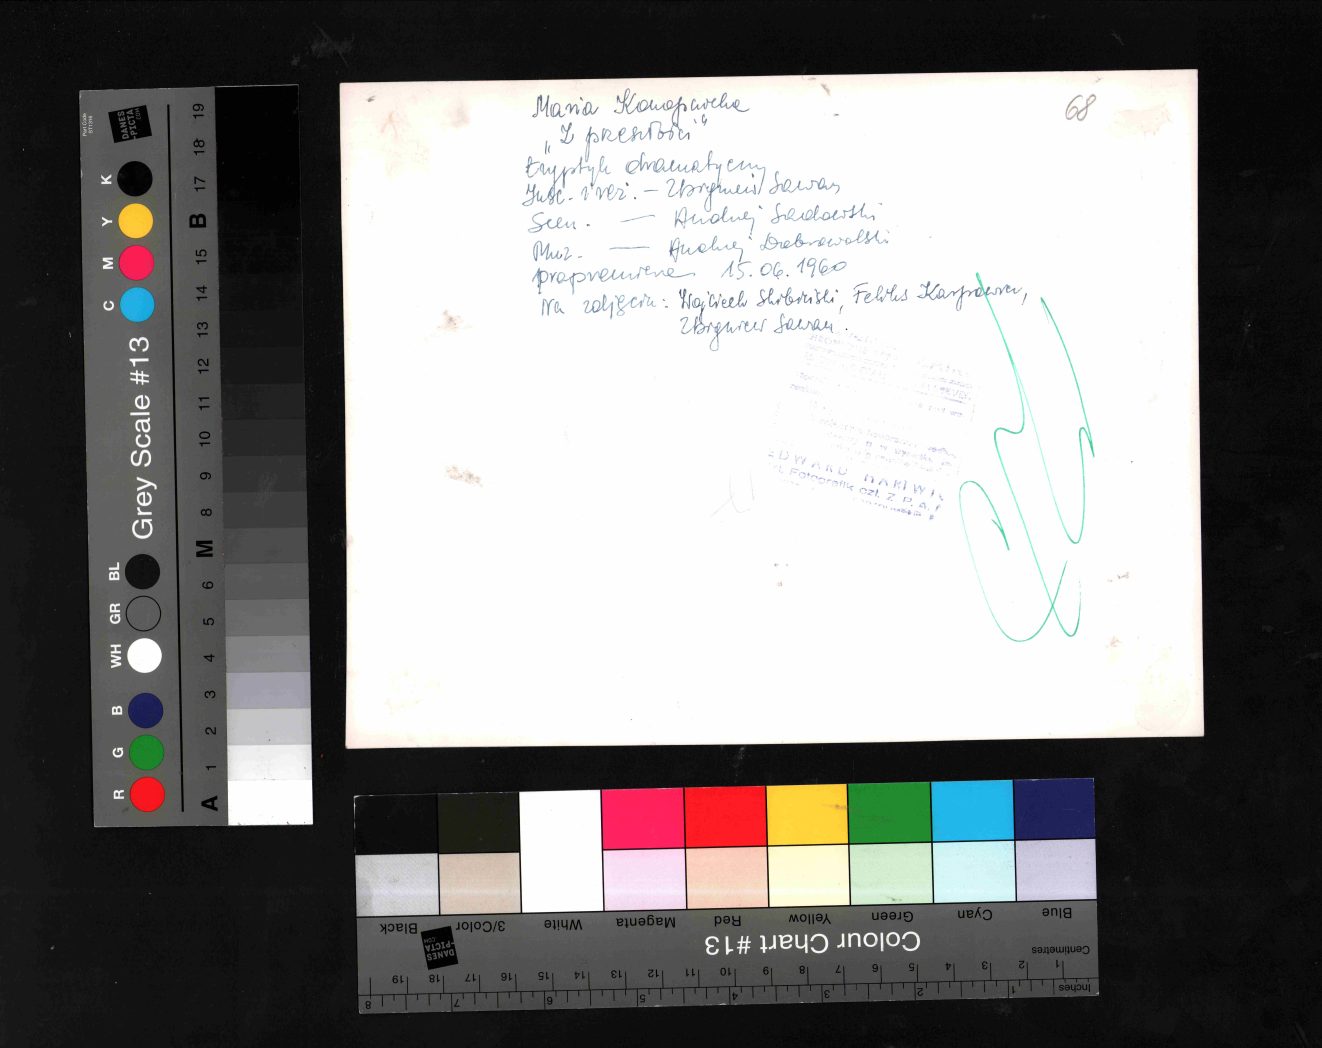 Maria Konopnicka
„Z przeszłości"
tryptyk dramatyczny
Insc. i reż. – Zbigniew Sawan
Scen. — Andrzej Sadowski
Muz. — Andrzej Dobrowolski
prapremiera 15.06.1960
Na zdjęciu: Wojciech Skibiński, Feliks Karpowicz,
Zbigniew Sawan.
68
EDWARD HARTWIG
Art. Fotografik czł. Z. P. A. F
Part Code
DANES
-PICTA
.COM
Grey Scale #13
R G B WH GR BL C M Y K
A 1 2 3 4 5 6 M 8 9 10 11 12 13 14 15 B 17 18 19
Black 3/Color White Magenta Red Yellow Green Cyan Blue
Colour Chart #13
DANES
-PICTA
.COM
Centimetres
1 2 3 4 5 6 7 8 9 10 11 12 13 14 15 16 17 18 19
Inches
1 2 3 4 5 6 7 8